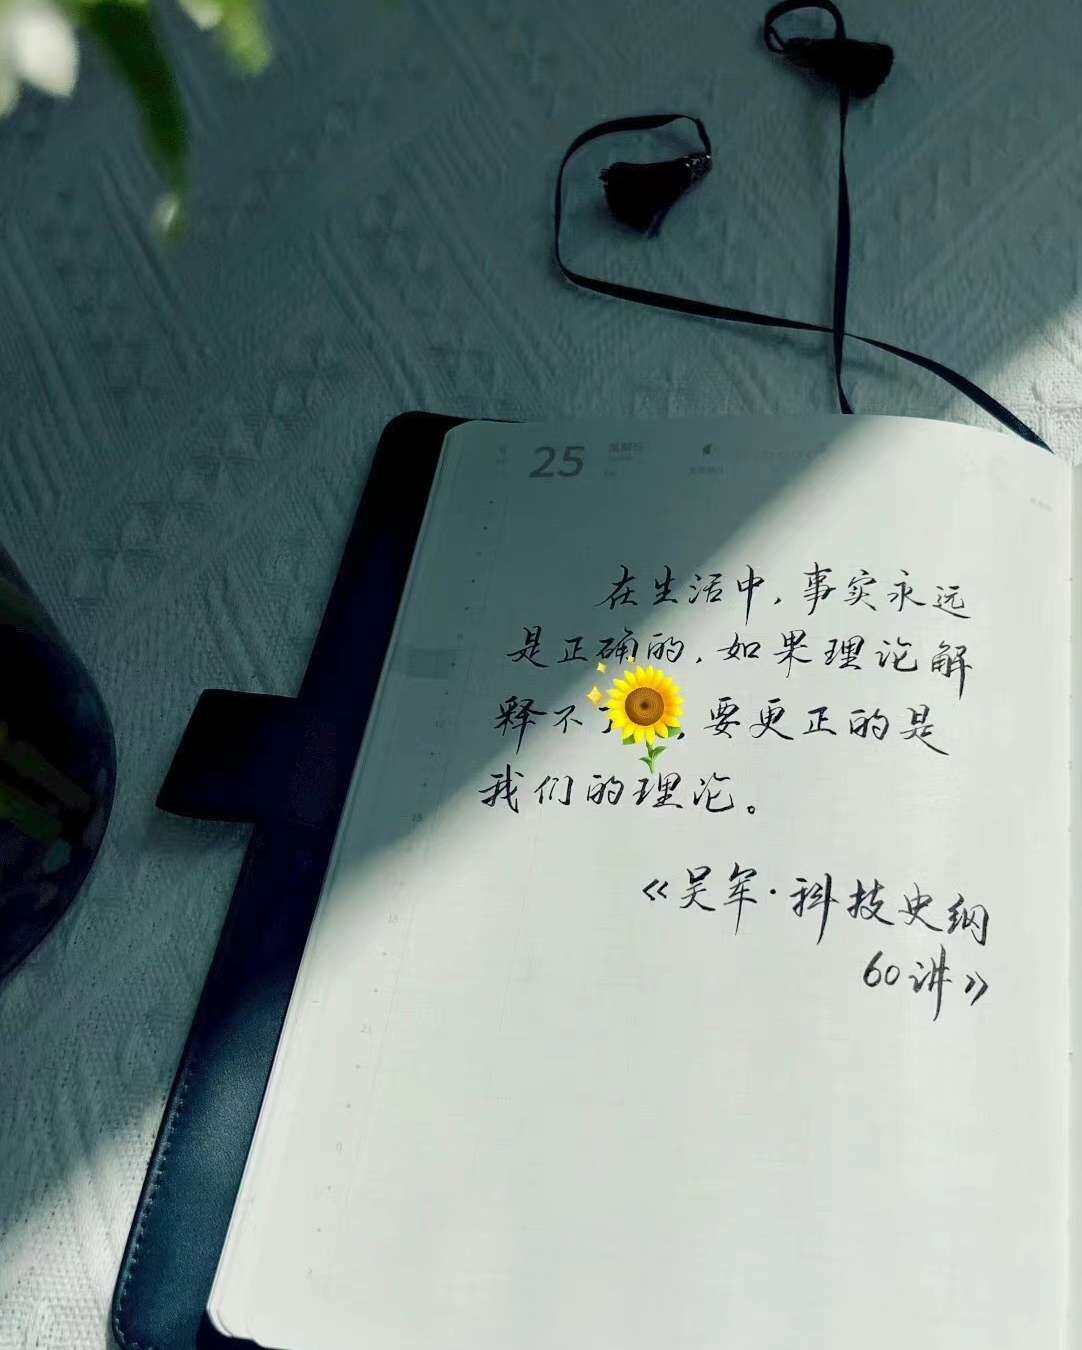 25
在生活中，事实永远
是正确的，如果理论解
释不了，要更正的是
我们的理论。
《吴军·科技史纲
60讲》